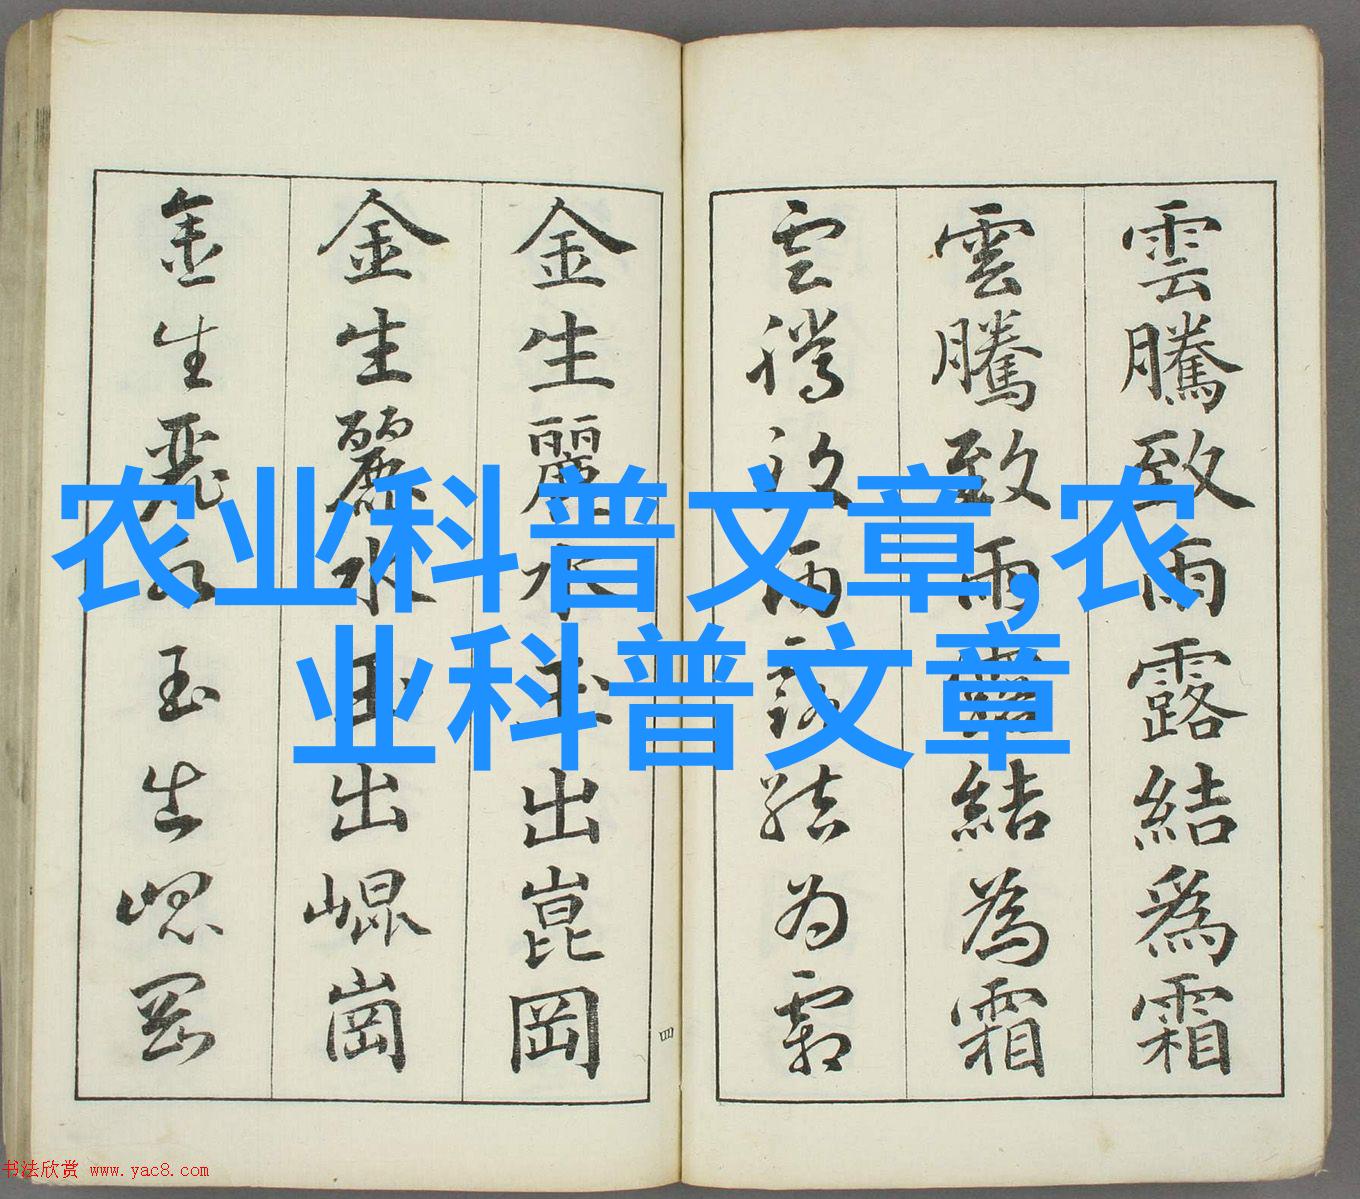 雲騰致雨露結爲霜
雲騰致雨露結為霜
雲騰致雨露結為霜
金生麗水玉出崑岡
金生麗水玉出崐崗
金生麗水玉出崐岡
四
农业科普文章,农
业科普文章
书法欣赏 www.yac8.com